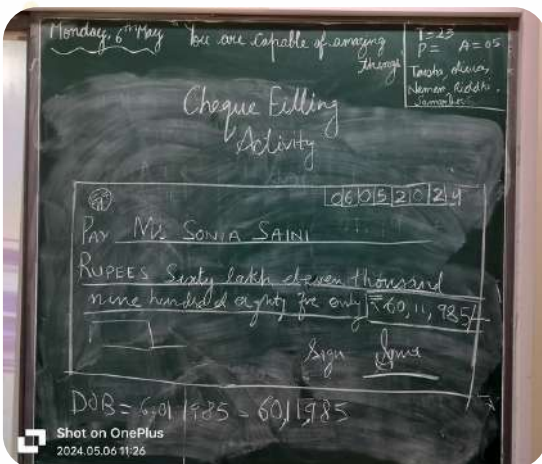 Monday, 6th May
You are capable of amazing
things
T = 23
P = A = 05
Naman, Riddhi,
Cheque Filling
Activity
06052024
PAY Ms SONIA SAINI
RUPEES Sixty lakh eleven thousand
nine hundred eighty five only ₹60,11,985/-
Sign
DOB = 6,01 1985 - 60,11,985
Shot on OnePlus
2024.05.06 11:26